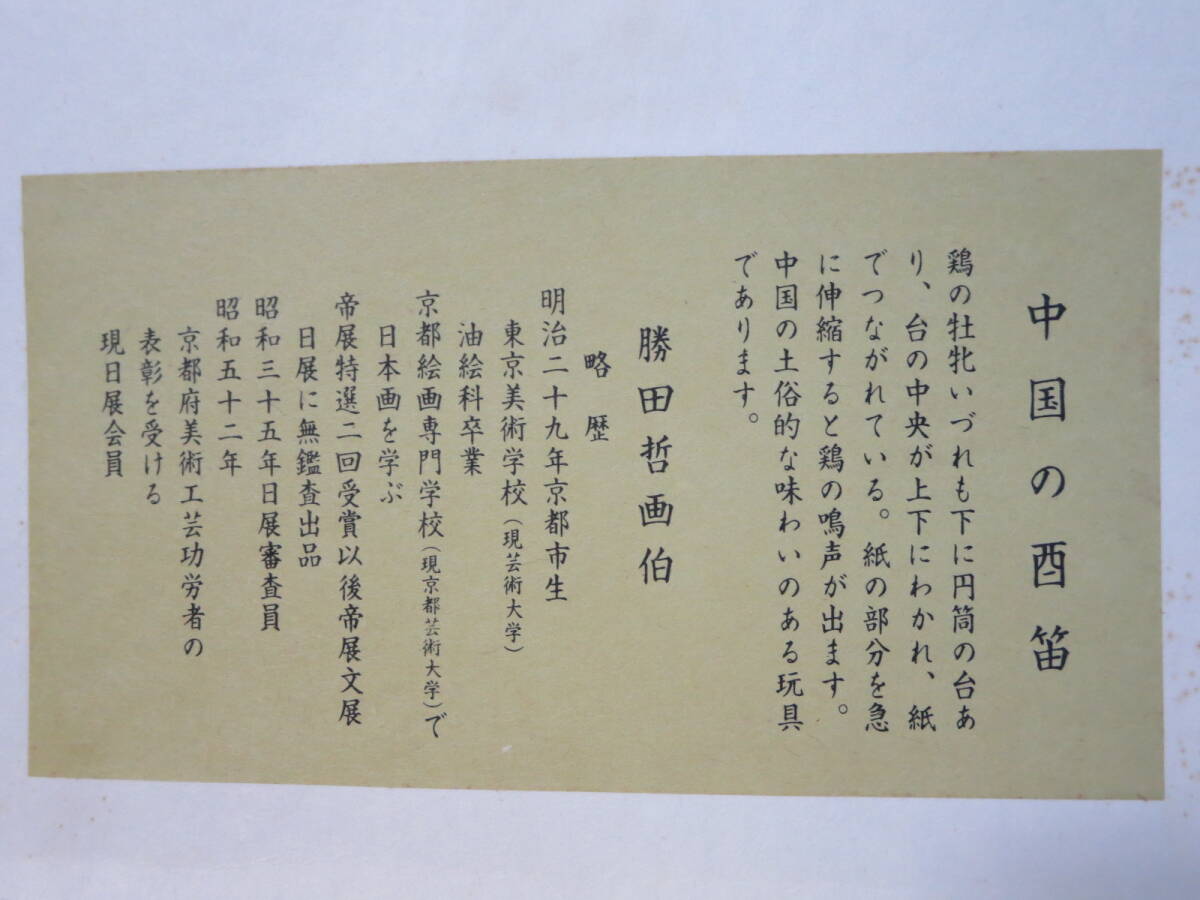 中国の酉笛
鶏の牡牝いづれも下に円筒の台あ
り、台の中央が上下にわかれ、紙
でつながれている。紙の部分を急
に伸縮すると鶏の鳴声が出ます。
中国の土俗的な味わいのある玩具
であります。
勝田哲画伯
略歴
明治二十九年京都市生
東京美術学校（現芸術大学）
油絵科卒業
京都絵画専門学校（現京都芸術大学）で
日本画を学ぶ
帝展特選二回受賞以後帝展文展
日展に無鑑査出品
昭和三十五年日展審査員
昭和五十二年
京都府美術工芸功労者の
表彰を受ける
現日展会員